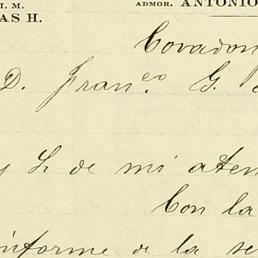 I. M.
AS H.
ADMOR. ANTONIO
Covadon
D. Franco G.
y S. de mi aten
Con la
informe de la se